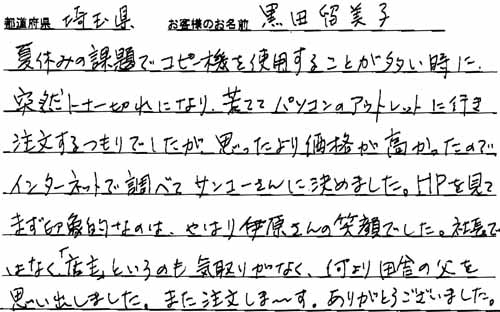 都道府県 埼玉県 お客様のお名前 黒田留美子
夏休みの課題でコピー機を使用することが多い時に、
突然トナー切れになり、荒てて パソコンのアウトレットに行き
注文するつもりでしたが、思ったより価格が高かったので
インターネットで調べて サンユーさんに決めました。HPを見て
まず印象的なのは、やはり伊原さんの笑顔でした。社長で
はなく「店主」というのも 気取りがなく、何より田舎の父を
思い出しました。また注文しま〜す。ありがとうございました。